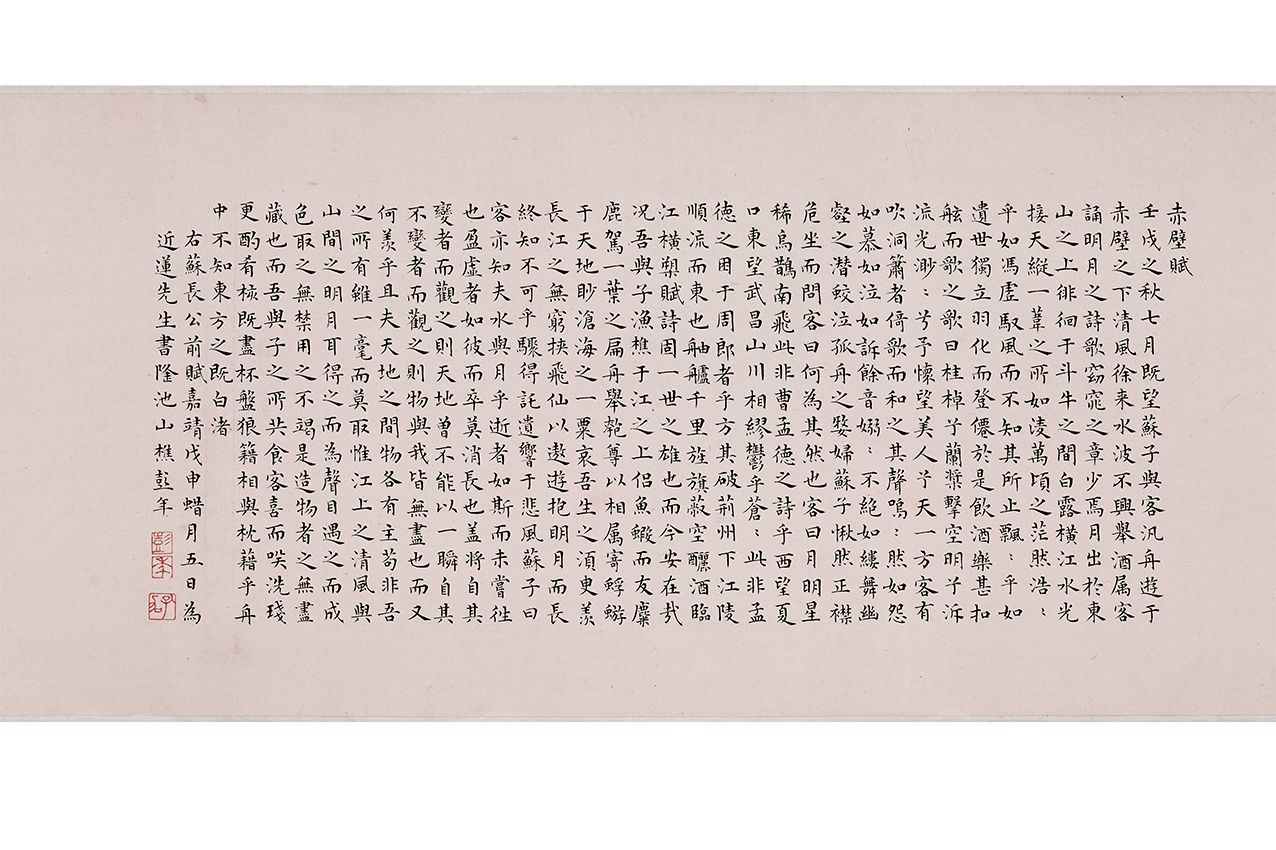 赤壁賦
壬戌之秋七月既望蘇子與客汎舟遊于
赤壁之下清風徐来水波不興舉酒属客
誦明月之詩歌窈窕之章少焉月出於東
山之上徘徊于斗牛之間白露橫江水光
接天縱一葦之所如淩萬頃之茫然浩〻
乎如馮虛馭風而不知其所止飄〻乎如
遺世獨立羽化而登僊於是飲酒樂甚扣
舷而歌之歌曰桂棹兮蘭槳擊空明兮泝
流光渺〻兮予懷望美人兮天一方客有
吹洞簫者倚歌而和之其聲嗚〻然如怨
如慕如泣如訴餘音嫋〻不絕如縷舞幽
壑之潛蛟泣孤舟之嫠婦蘇子愀然正襟
危坐而問客曰何為其然也客曰月明星
稀烏鵲南飛此非曹孟德之詩乎西望夏
口東望武昌山川相繆鬱乎蒼〻此非孟
德之困于周郎者乎方其破荊州下江陵
順流而東也舳艫千里旌旗蔽空釃酒臨
江橫槊賦詩固一世之雄也而今安在哉
况吾與子漁樵于江之上侶魚蝦而友麋
鹿駕一葉之扁舟舉匏尊以相属寄蜉蝣
于天地眇滄海之一粟哀吾生之須臾羨
長江之無窮挾飛仙以遨遊抱明月而長
終知不可乎驟得託遺響于悲風蘇子曰
客亦知夫水與月乎逝者如斯而未嘗往
也盈虛者如彼而卒莫消長也盖將自其
變者而觀之則天地曾不能以一瞬自其
不變者而觀之則物與我皆無盡也而又
何羨乎且夫天地之間物各有主苟非吾
之所有雖一毫而莫取惟江上之清風與
山間之明月耳得之而為聲目遇之而成
色取之無禁用之不竭是造物者之無盡
藏也而吾與子之所共食客喜而笑洗琖
更酌肴核既盡杯盤狼籍相與枕藉乎舟
中不知東方之既白渚
右蘇長公前賦嘉靖戊申蜡月五日為
近蓮先生書隆池山樵彭年
彭年